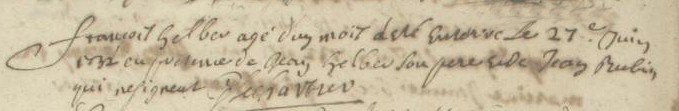 francoit helber agé dun moit a esté Enterre Le 27e Juin
en presence de Jean helber son pere et de Jean Rubin
qui ne signent